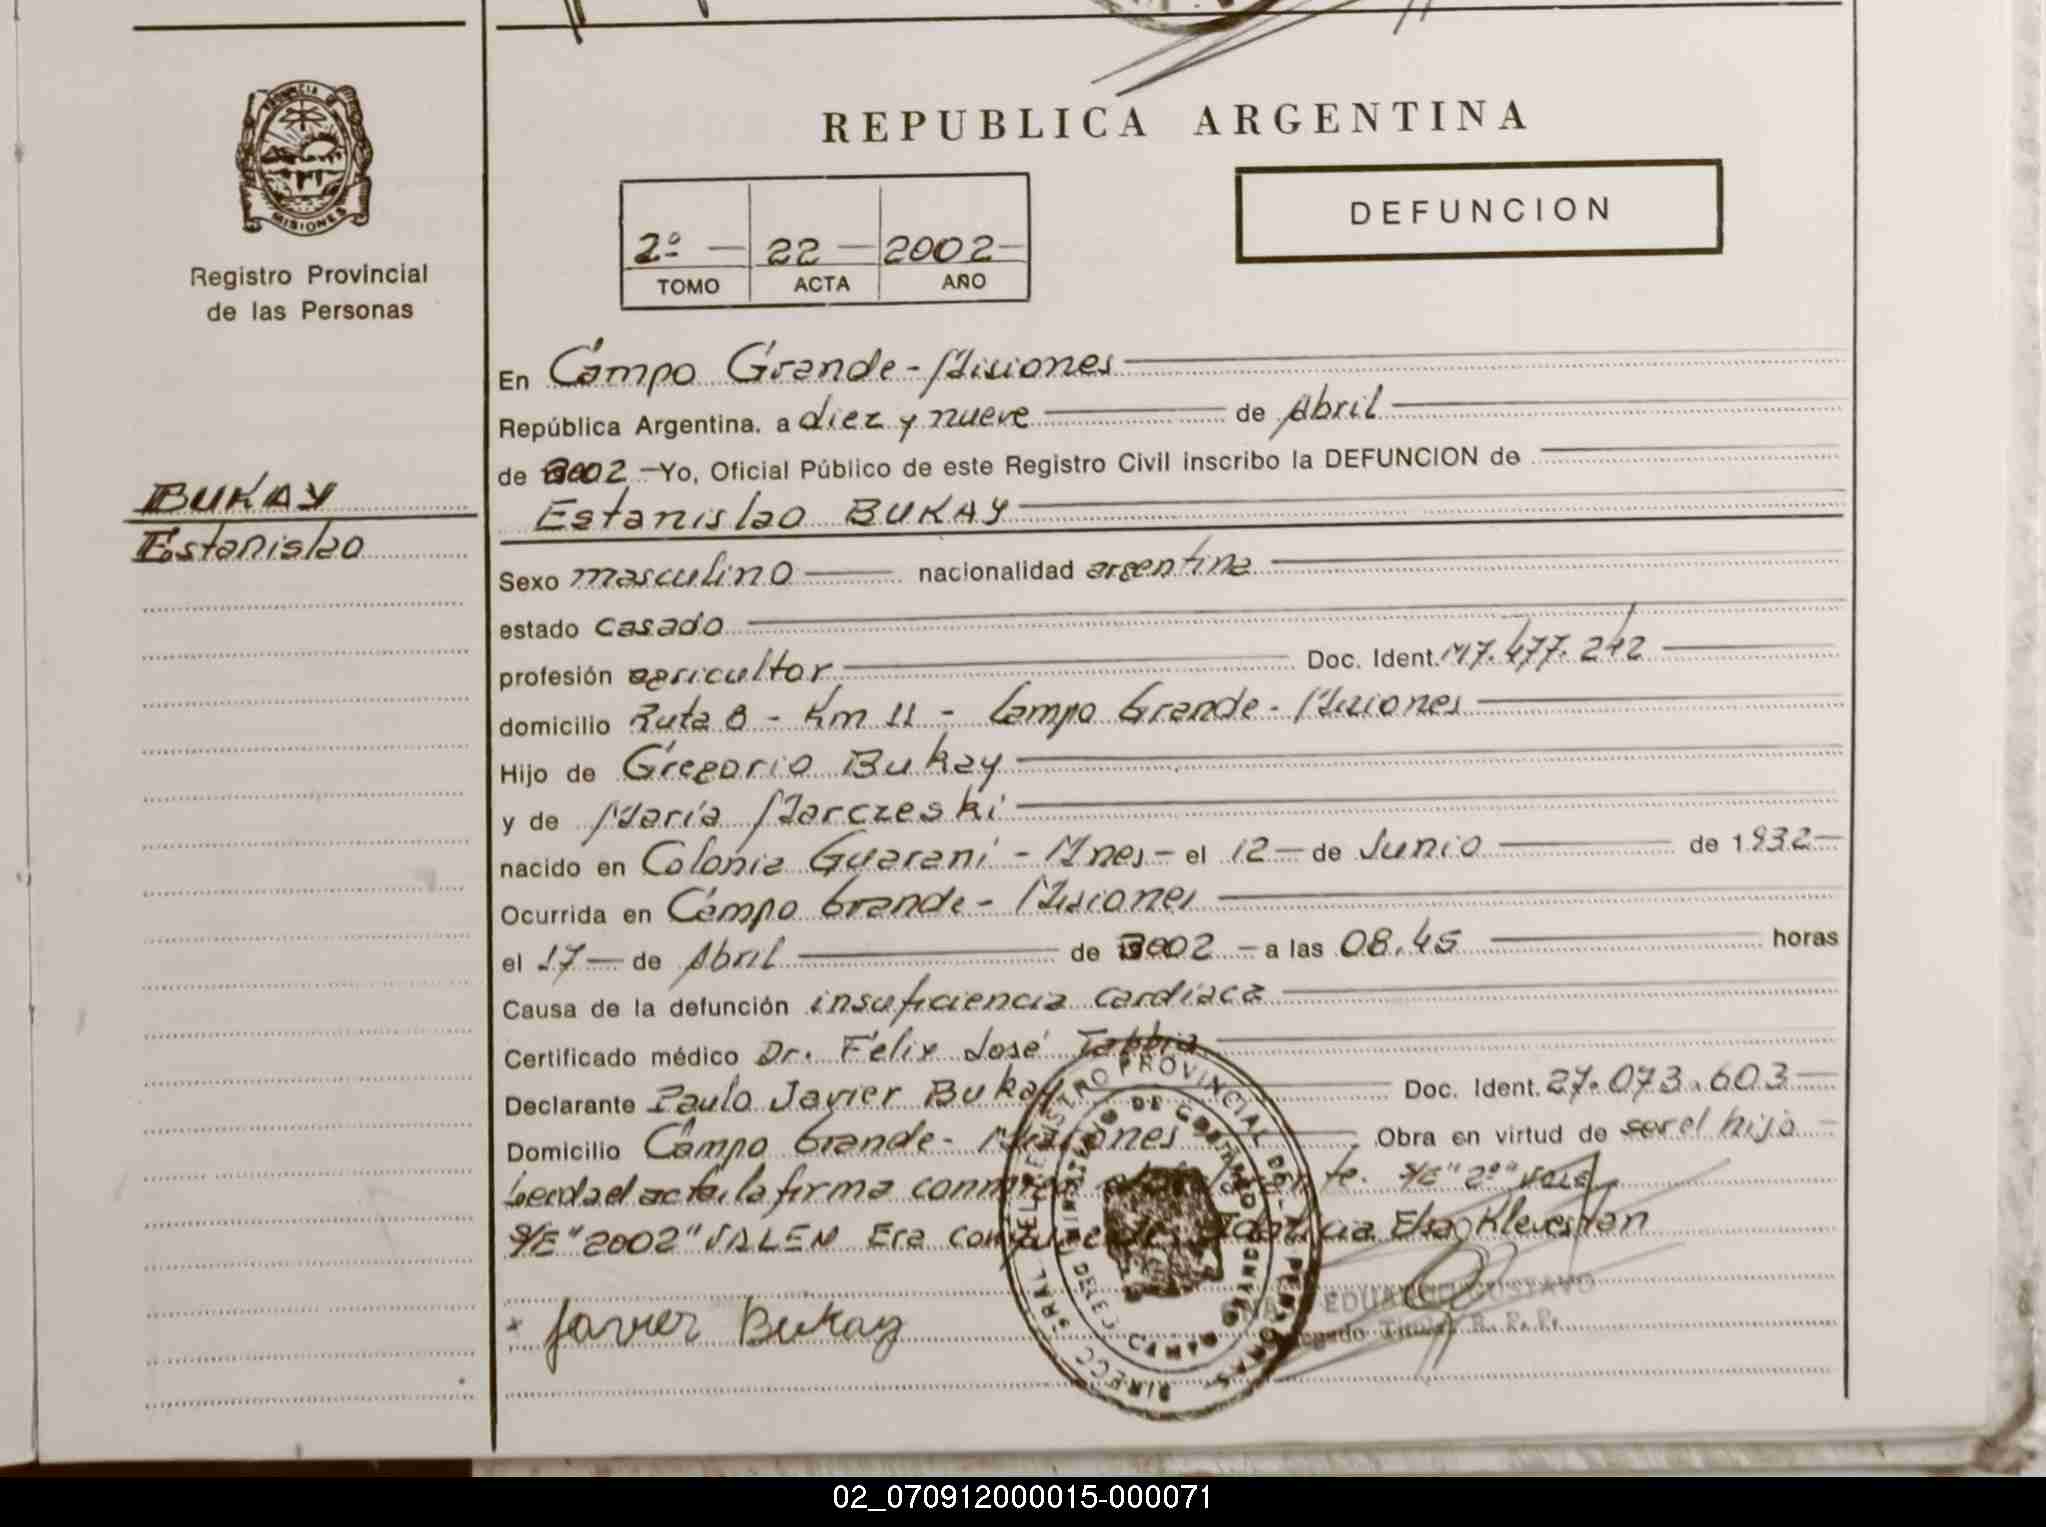 PROVINCIA DE
MISIONES
Registro Provincial
de las Personas
BUKAY
Estanislao
REPUBLICA ARGENTINA
2º — 22 — 2002 —
TOMO ACTA AÑO
DEFUNCION
En Campo Grande - Misiones
República Argentina, a diez y nueve de Abril
de 2002 — Yo, Oficial Público de este Registro Civil inscribo la DEFUNCION de
Estanislao BUKAY
Sexo masculino nacionalidad argentina
estado casado
profesión agricultor Doc. Ident. M7.477.242
domicilio Ruta 8 - Km 11 - Campo Grande - Misiones
Hijo de Gregorio Bukay
y de María Marczeski
nacido en Colonia Guaraní - Mnes - el 12 — de Junio de 1932 —
Ocurrida en Campo Grande - Misiones
el 17 — de Abril de 2002 — a las 08.45 horas
Causa de la defunción insuficiencia cardíaca
Certificado médico Dr. Félix José Tabbia
Declarante Paulo Javier Bukay Doc. Ident. 27.073.603 —
Domicilio Campo Grande - Misiones Obra en virtud de ser el hijo —
Leida el acta, la firma conmigo el declarante. S/E "2º" VALE
S/E "2002" VALEN Era conyuge de Elsa Klevestan
Javier Bukay
EDUARDO GUSTAVO
Titular R. P. P.
DIRECC. GRAL. DEL REGISTRO PROVINCIAL DE LAS PERSONAS
MINISTERIO DE GOBIERNO
CAMPO GRANDE
02_070912000015-000071